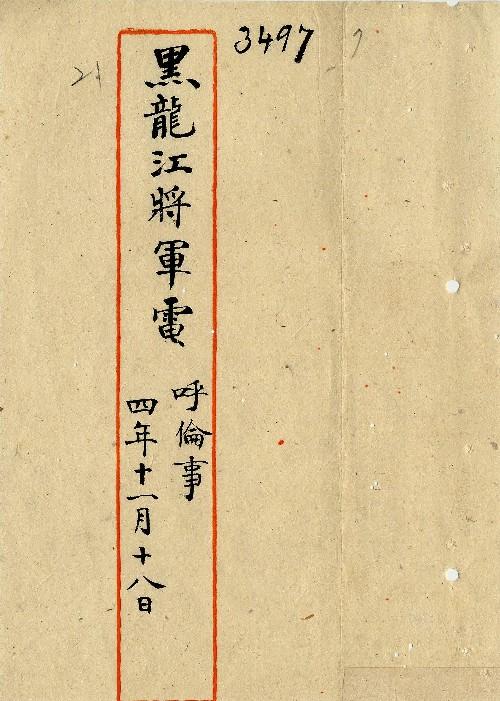 3497
黑龍江將軍電
呼倫事
四年十一月十八日